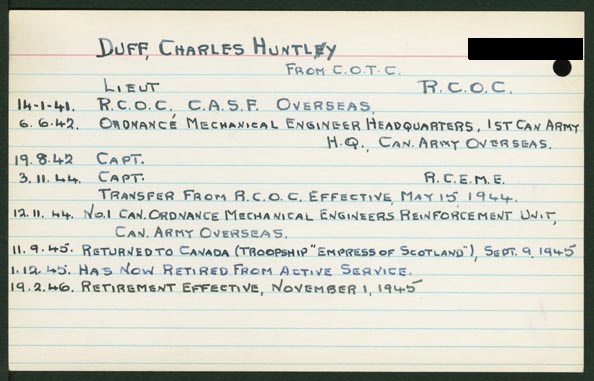 DUFF, CHARLES HUNTLEY
FROM C.O.T.C.
LIEUT R.C.O.C.
14-1-41. R.C.O.C. C.A.S.F. OVERSEAS.
6.6.42. ORDNANCE MECHANICAL ENGINEER HEADQUARTERS, 1ST CAN ARMY
H.Q., CAN. ARMY OVERSEAS.
19.8.42 CAPT.
3.11.44. CAPT. R.C.E.M.E.
TRANSFER FROM R.C.O.C. EFFECTIVE, MAY 15 1944.
12.11.44. NO.1 CAN. ORDNANCE MECHANICAL ENGINEERS REINFORCEMENT UNIT,
CAN. ARMY OVERSEAS.
11.9.45. RETURNED TO CANADA (TROOPSHIP "EMPRESS OF SCOTLAND"), SEPT. 9, 1945
1.12.45. HAS NOW RETIRED FROM ACTIVE SERVICE.
19.2.46. RETIREMENT EFFECTIVE, NOVEMBER 1, 1945